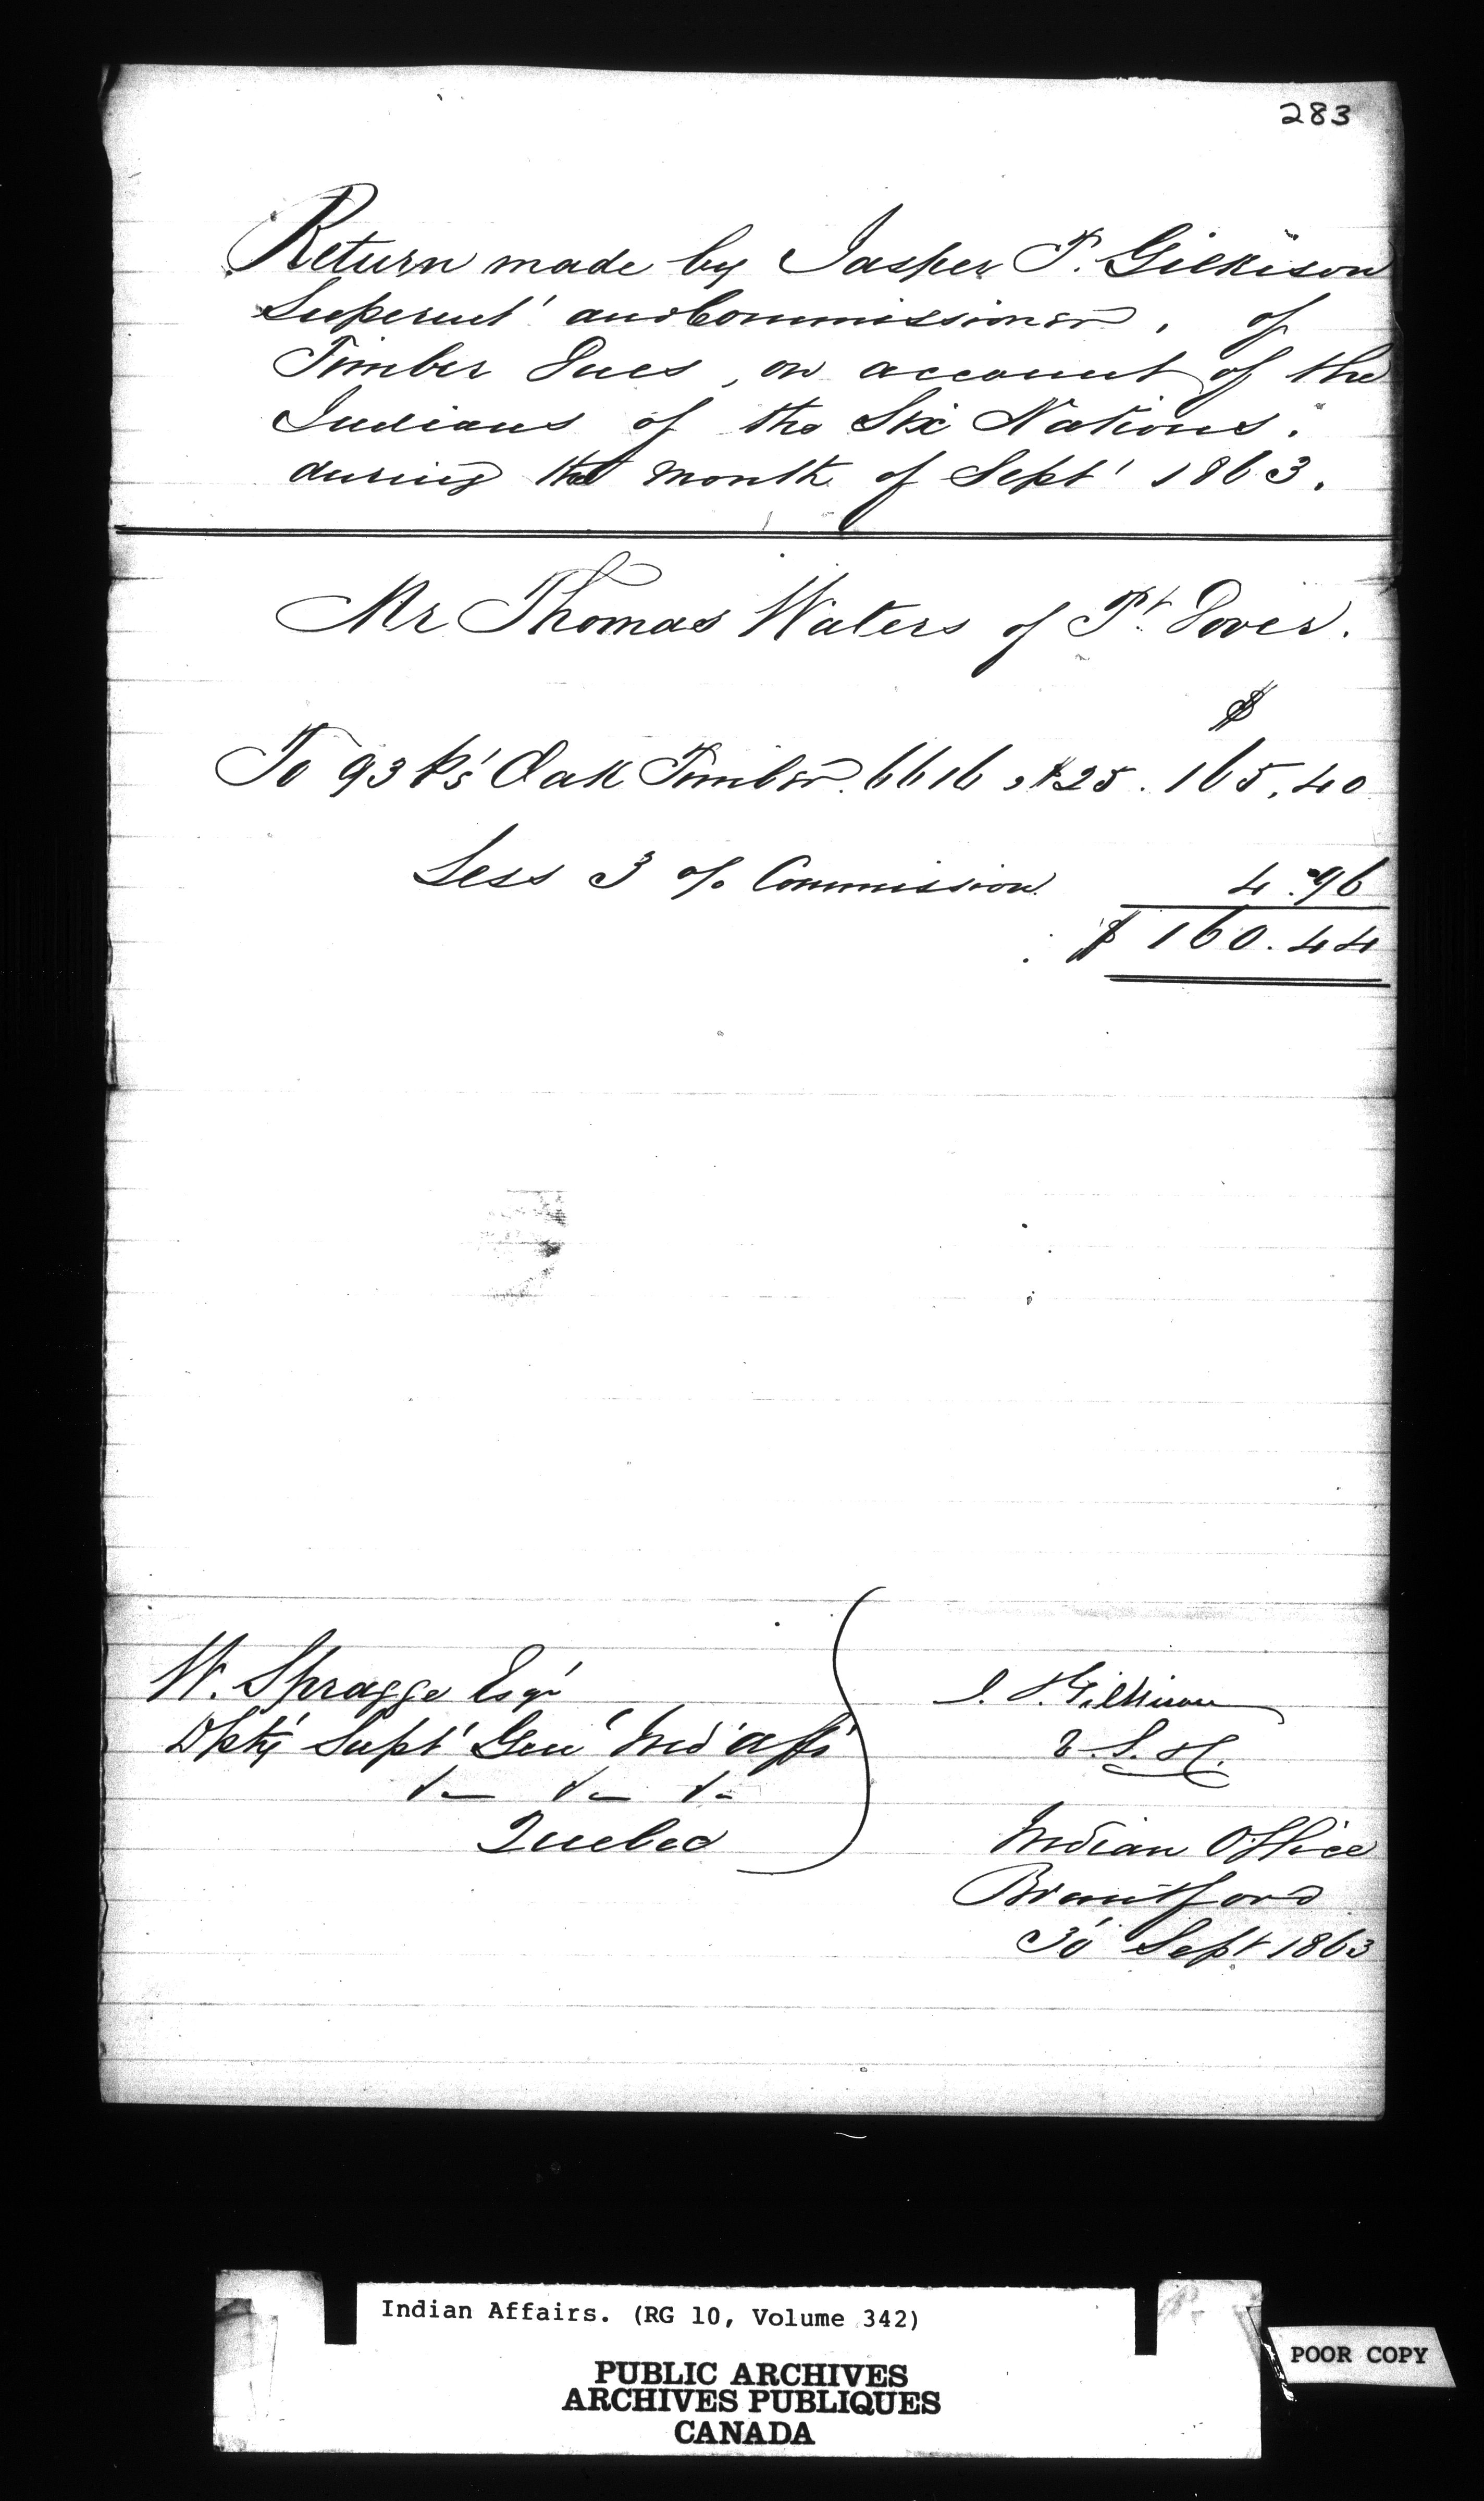 283
Return made by Jasper T. Gilkison
Superint' and Commissioner, of
Timber Dues, on account of the
Indians of the Six Nations.
during the month of Sept' 1863.
Mr Thomas Waters of Pt Dover.
$
To 93 ps' Oak Timber. 6616, $25. 165.40
Less 3 % Commission 4.96
$ 160.44
W. Spragge Esqr
Dpty' Supt' Gen' Ind' Affs'
Quebec
J. T. Gilkison
Indian Office
Brantford
30 Sept 1863
Indian Affairs. (RG 10, Volume 342)
PUBLIC ARCHIVES
ARCHIVES PUBLIQUES
CANADA
POOR COPY